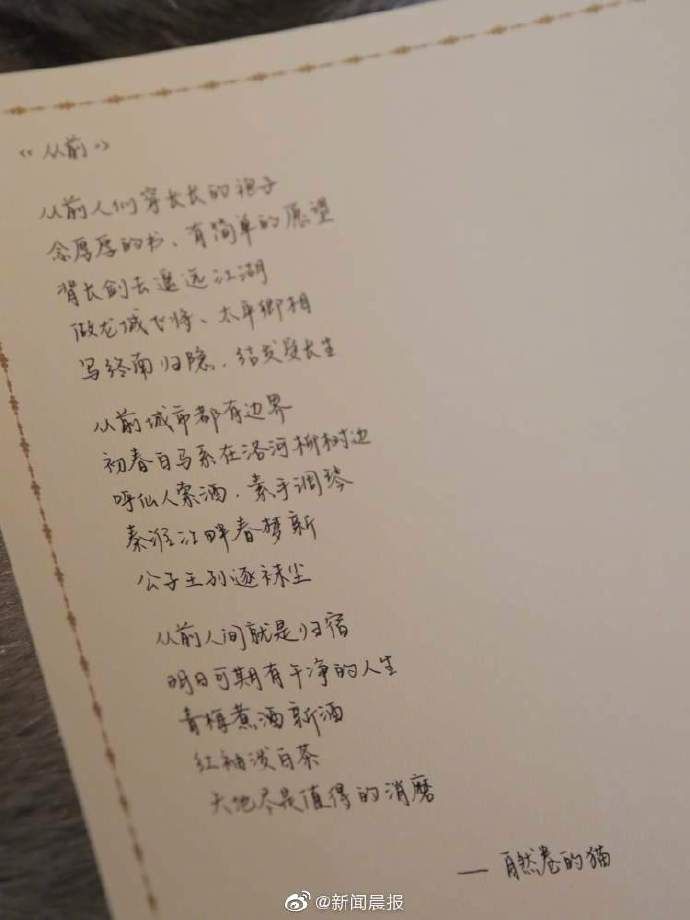 《从前》
从前人们穿长长的袍子
念厚厚的书、有简单的愿望
背长剑去遥远江湖
做龙城飞将、太平卿相
写终南归隐、结发受长生
从前城市都有边界
初春白马系在洛河柳树边
呼仙人索酒、素手调琴
秦淮江畔春梦新
公子王孙逐袜尘
从前人间就是归宿
明日可期有干净的人生
青梅煮酒新酒
红袖泼白茶
天地尽是值得的消磨
— 自然卷的猫
@新闻晨报